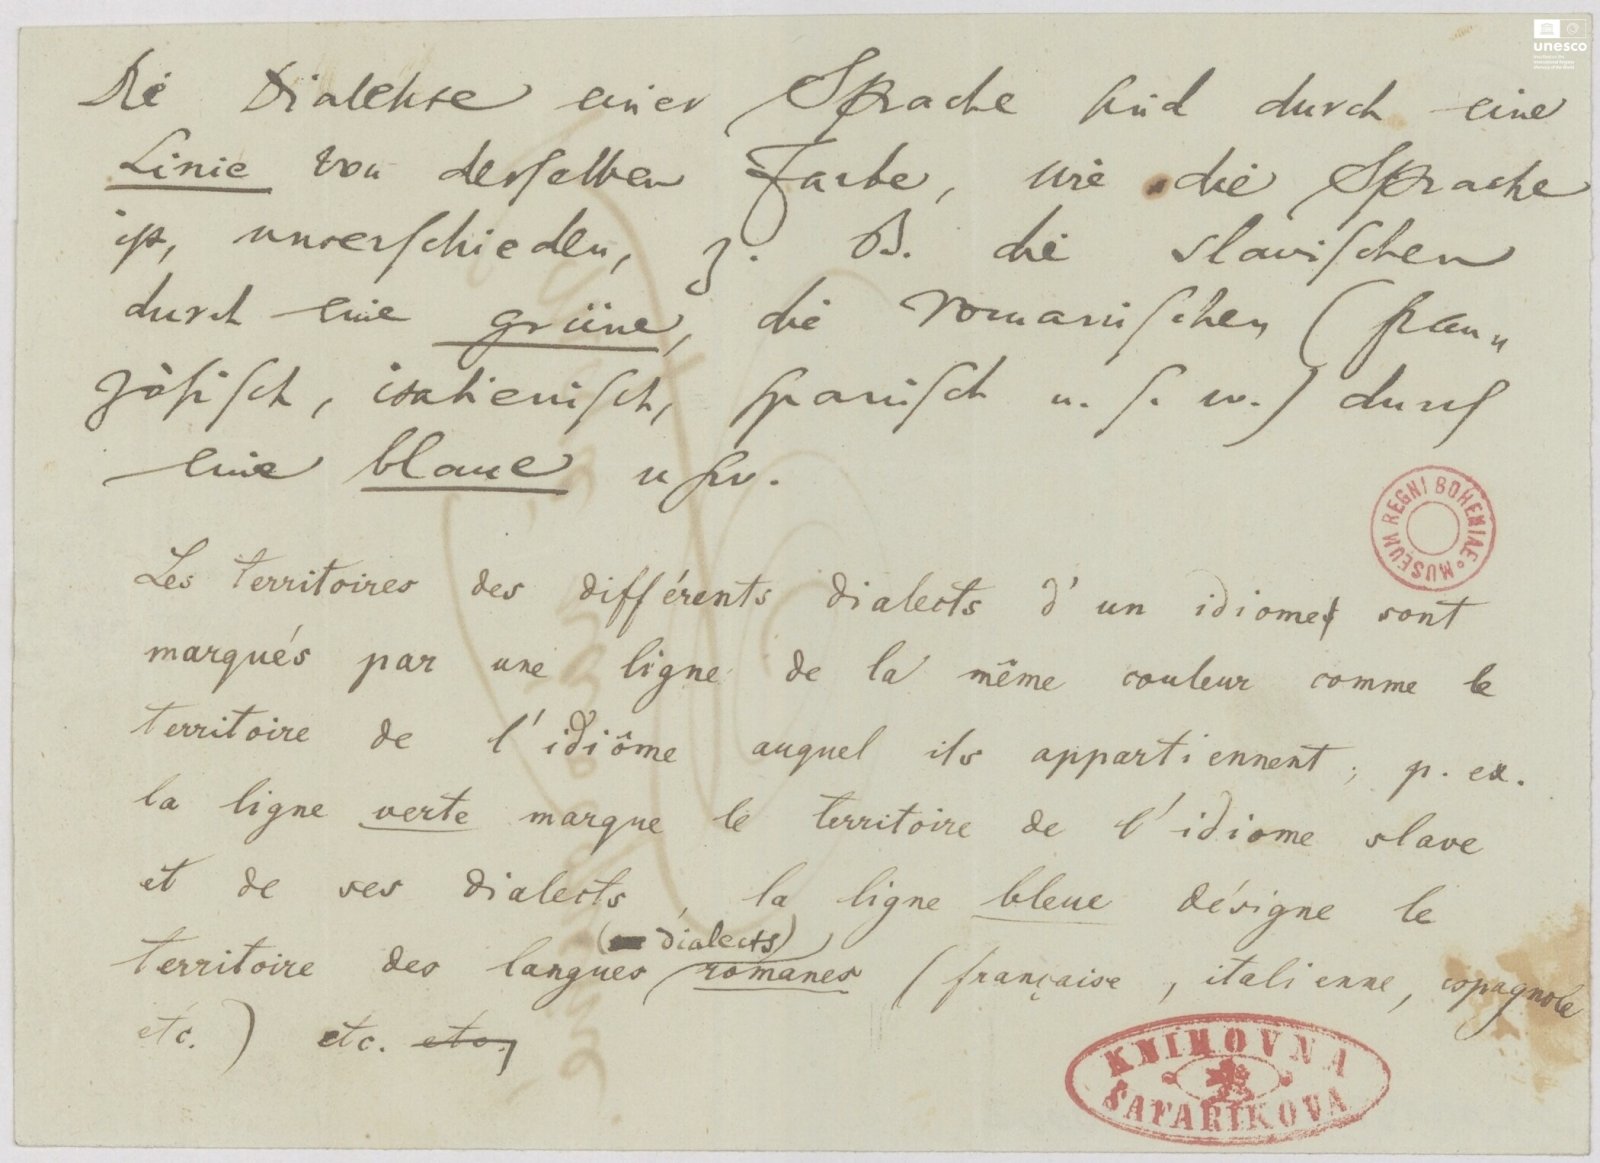 Die Dialekte einer Sprache sind durch eine
Linie von derselben Farbe, wie die Sprache
ist, unterschieden, z. B. die slavischen
durch eine grüne, die romanischen (fran„
zösisch, italienisch, spanisch u. s. w.) durch
eine blaue usw.
Les territoires des différents dialects d'un idiome sont
marqués par une ligne de la même couleur comme le
territoire de l'idiôme auquel ils appartiennent; p. ex.
la ligne verte marque le territoire de l'idiome slave
et de ses dialects, la ligne bleue désigne le
(dialects)
territoire des langues romanes (française, italienne, espagnole
etc.) etc. etc.
MUSEUM REGNI BOHEMIAE
KNIHOVNA
ŠAFAŘÍKOVA
unesco